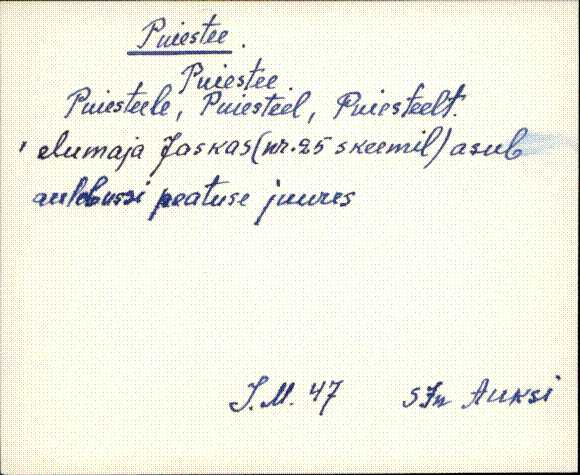 Puiestee.
Puiestee
Puiesteele, Puiesteel, Puiesteelt.
elumaja Jaskas (nr. 25 skeemil) asub
autobussi peatuse juures
J.M. 47 SJn Auksi